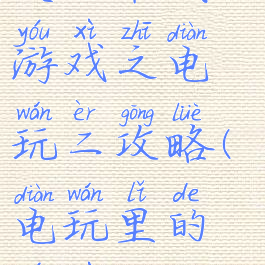 yóu xì zhī diàn
游戏之电
wán èr gōng lüè
玩二攻略(
diàn wán lǐ de
电玩里的